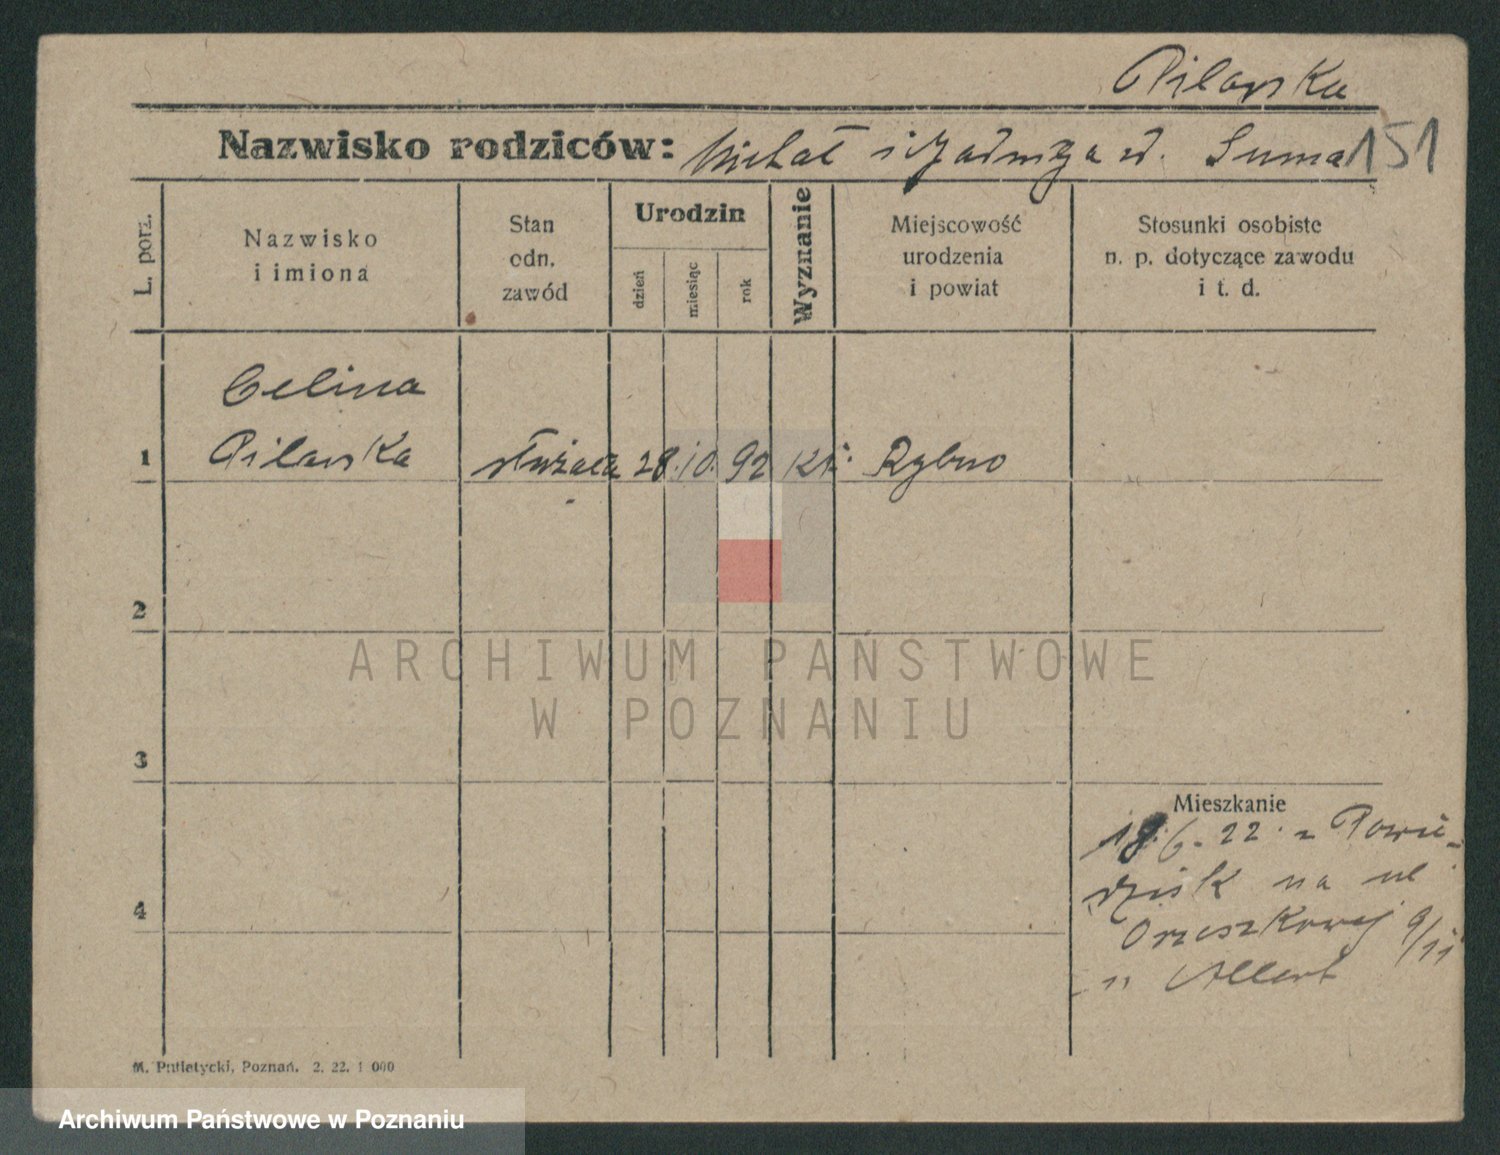 Pilarska
Nazwisko rodziców: Michał i Jadwiga d. Suma 151
L. porz.
Nazwisko
i imiona
Stan
odn.
zawód
Urodzin
dzień
miesiąc
rok
Wyznanie
Miejscowość
urodzenia
i powiat
Stosunki osobiste
n. p. dotyczące zawodu
i t. d.
Celina
1 Pilarska służaca 28. 10. 92 kt. Rybno
2
ARCHIWUM PAŃSTWOWE
W POZNANIU
3
Mieszkanie
18. 6. 22. z Powie-
dzisk na ul
4
Orzeszkowej 9/11
u Allert
M. Putiatycki, Poznań. 2. 22. 1 000
Archiwum Państwowe w Poznaniu